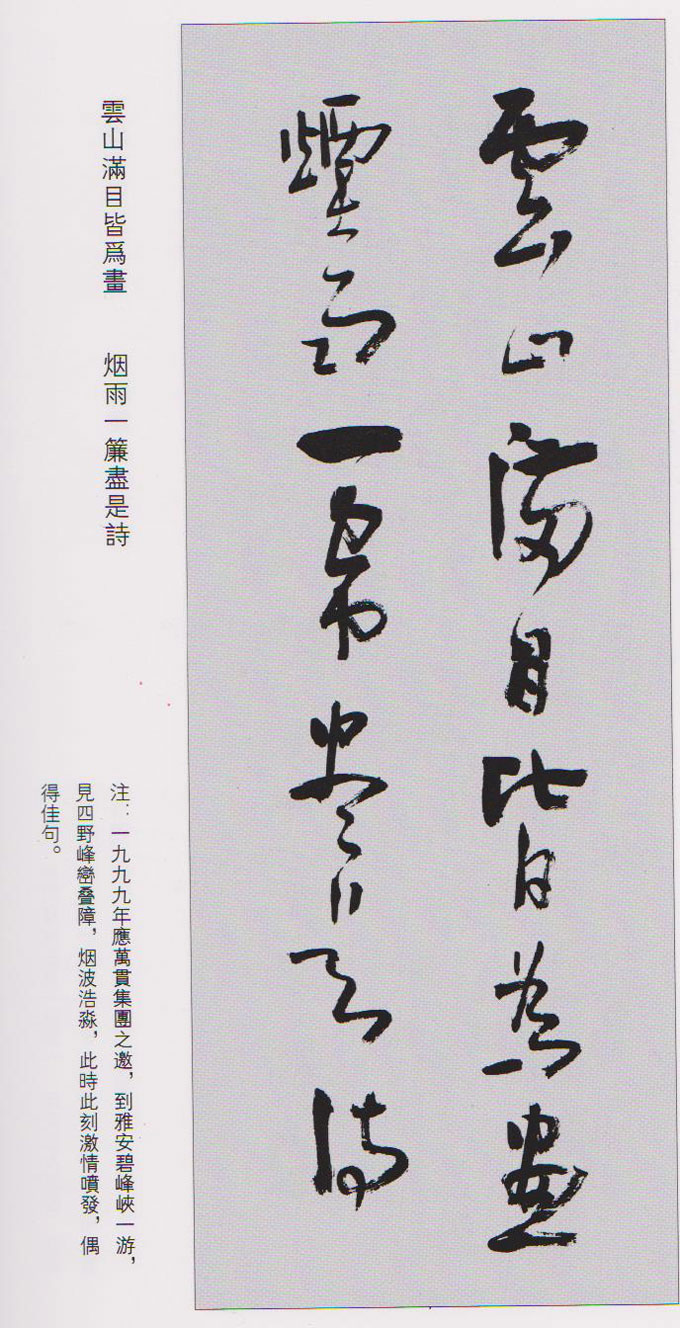 雲山滿目皆為畫
煙雨一帘尽是诗
雲山滿目皆爲畫 烟雨一簾盡是詩
注：一九九九年應萬貫集團之邀，到雅安碧峰峽一游，
見四野峰巒叠障，烟波浩淼，此時此刻激情噴發，偶
得佳句。